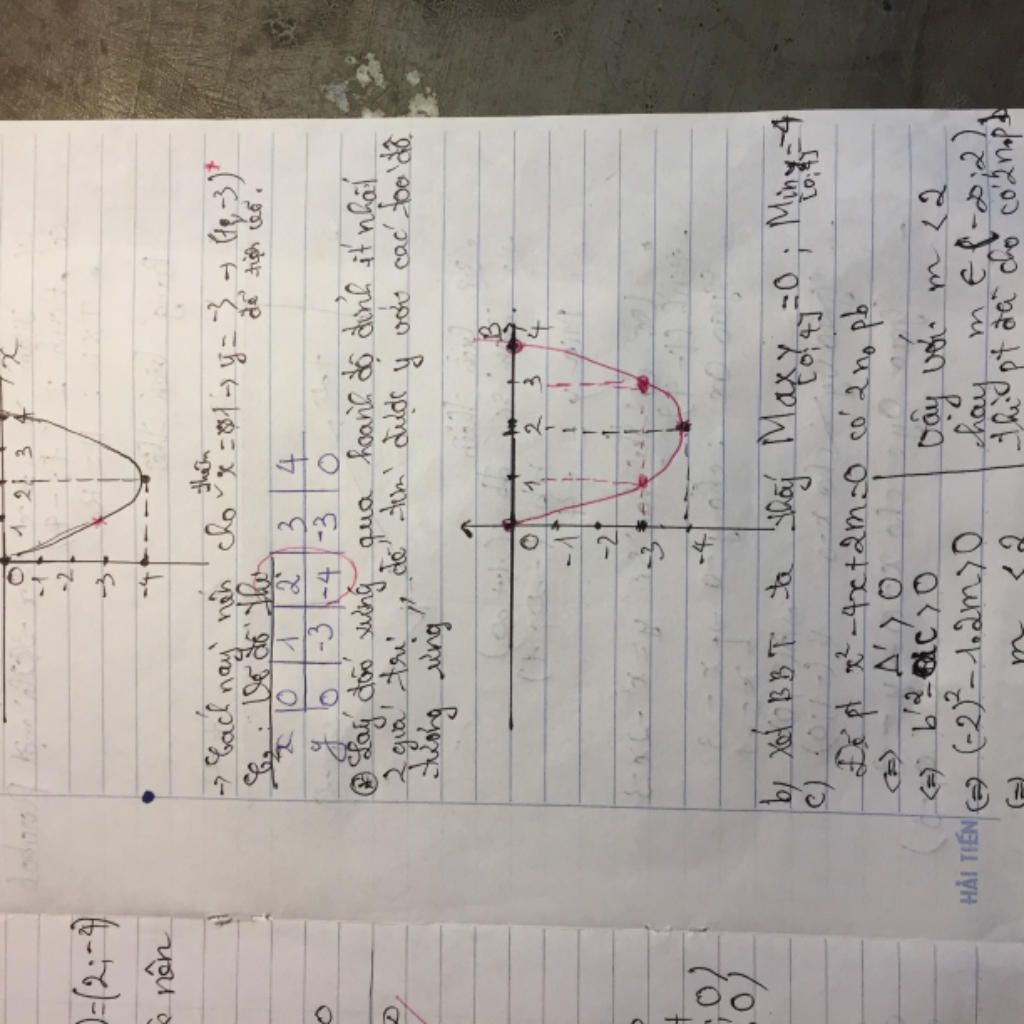 x
O 1 2 3 4
-1
-2
-3
-4
→ Cách này nên cho thêm x = 1 → y = -3 → (1, -3)
để tiện vẽ.
C2: Vẽ đồ thị
x 0 1 2 3 4
y 0 -3 -4 -3 0
* Lấy đối xứng qua hoành độ đỉnh ít nhất
2 giá trị, để tìm được y với các toạ độ
tương ứng
B
O 1 2 3 4
-1
-2
-3
-4
b) Xét BBT ta thấy Max y = 0 ; Min y = -4
[0;4] [0;4]
c)
Để pt x² - 4x + 2m = 0 có 2 n₀ pb
(=) Δ' > 0
(=) b'² - ac > 0
(=) (-2)² - 1.2m > 0
(=) m < 2
Vậy với m < 2
hay m ∈ (-∞; 2)
thì pt đã cho có 2 n₀ pb
HẢI TIẾN
) = (2; -4)
nên
; 0)
0)